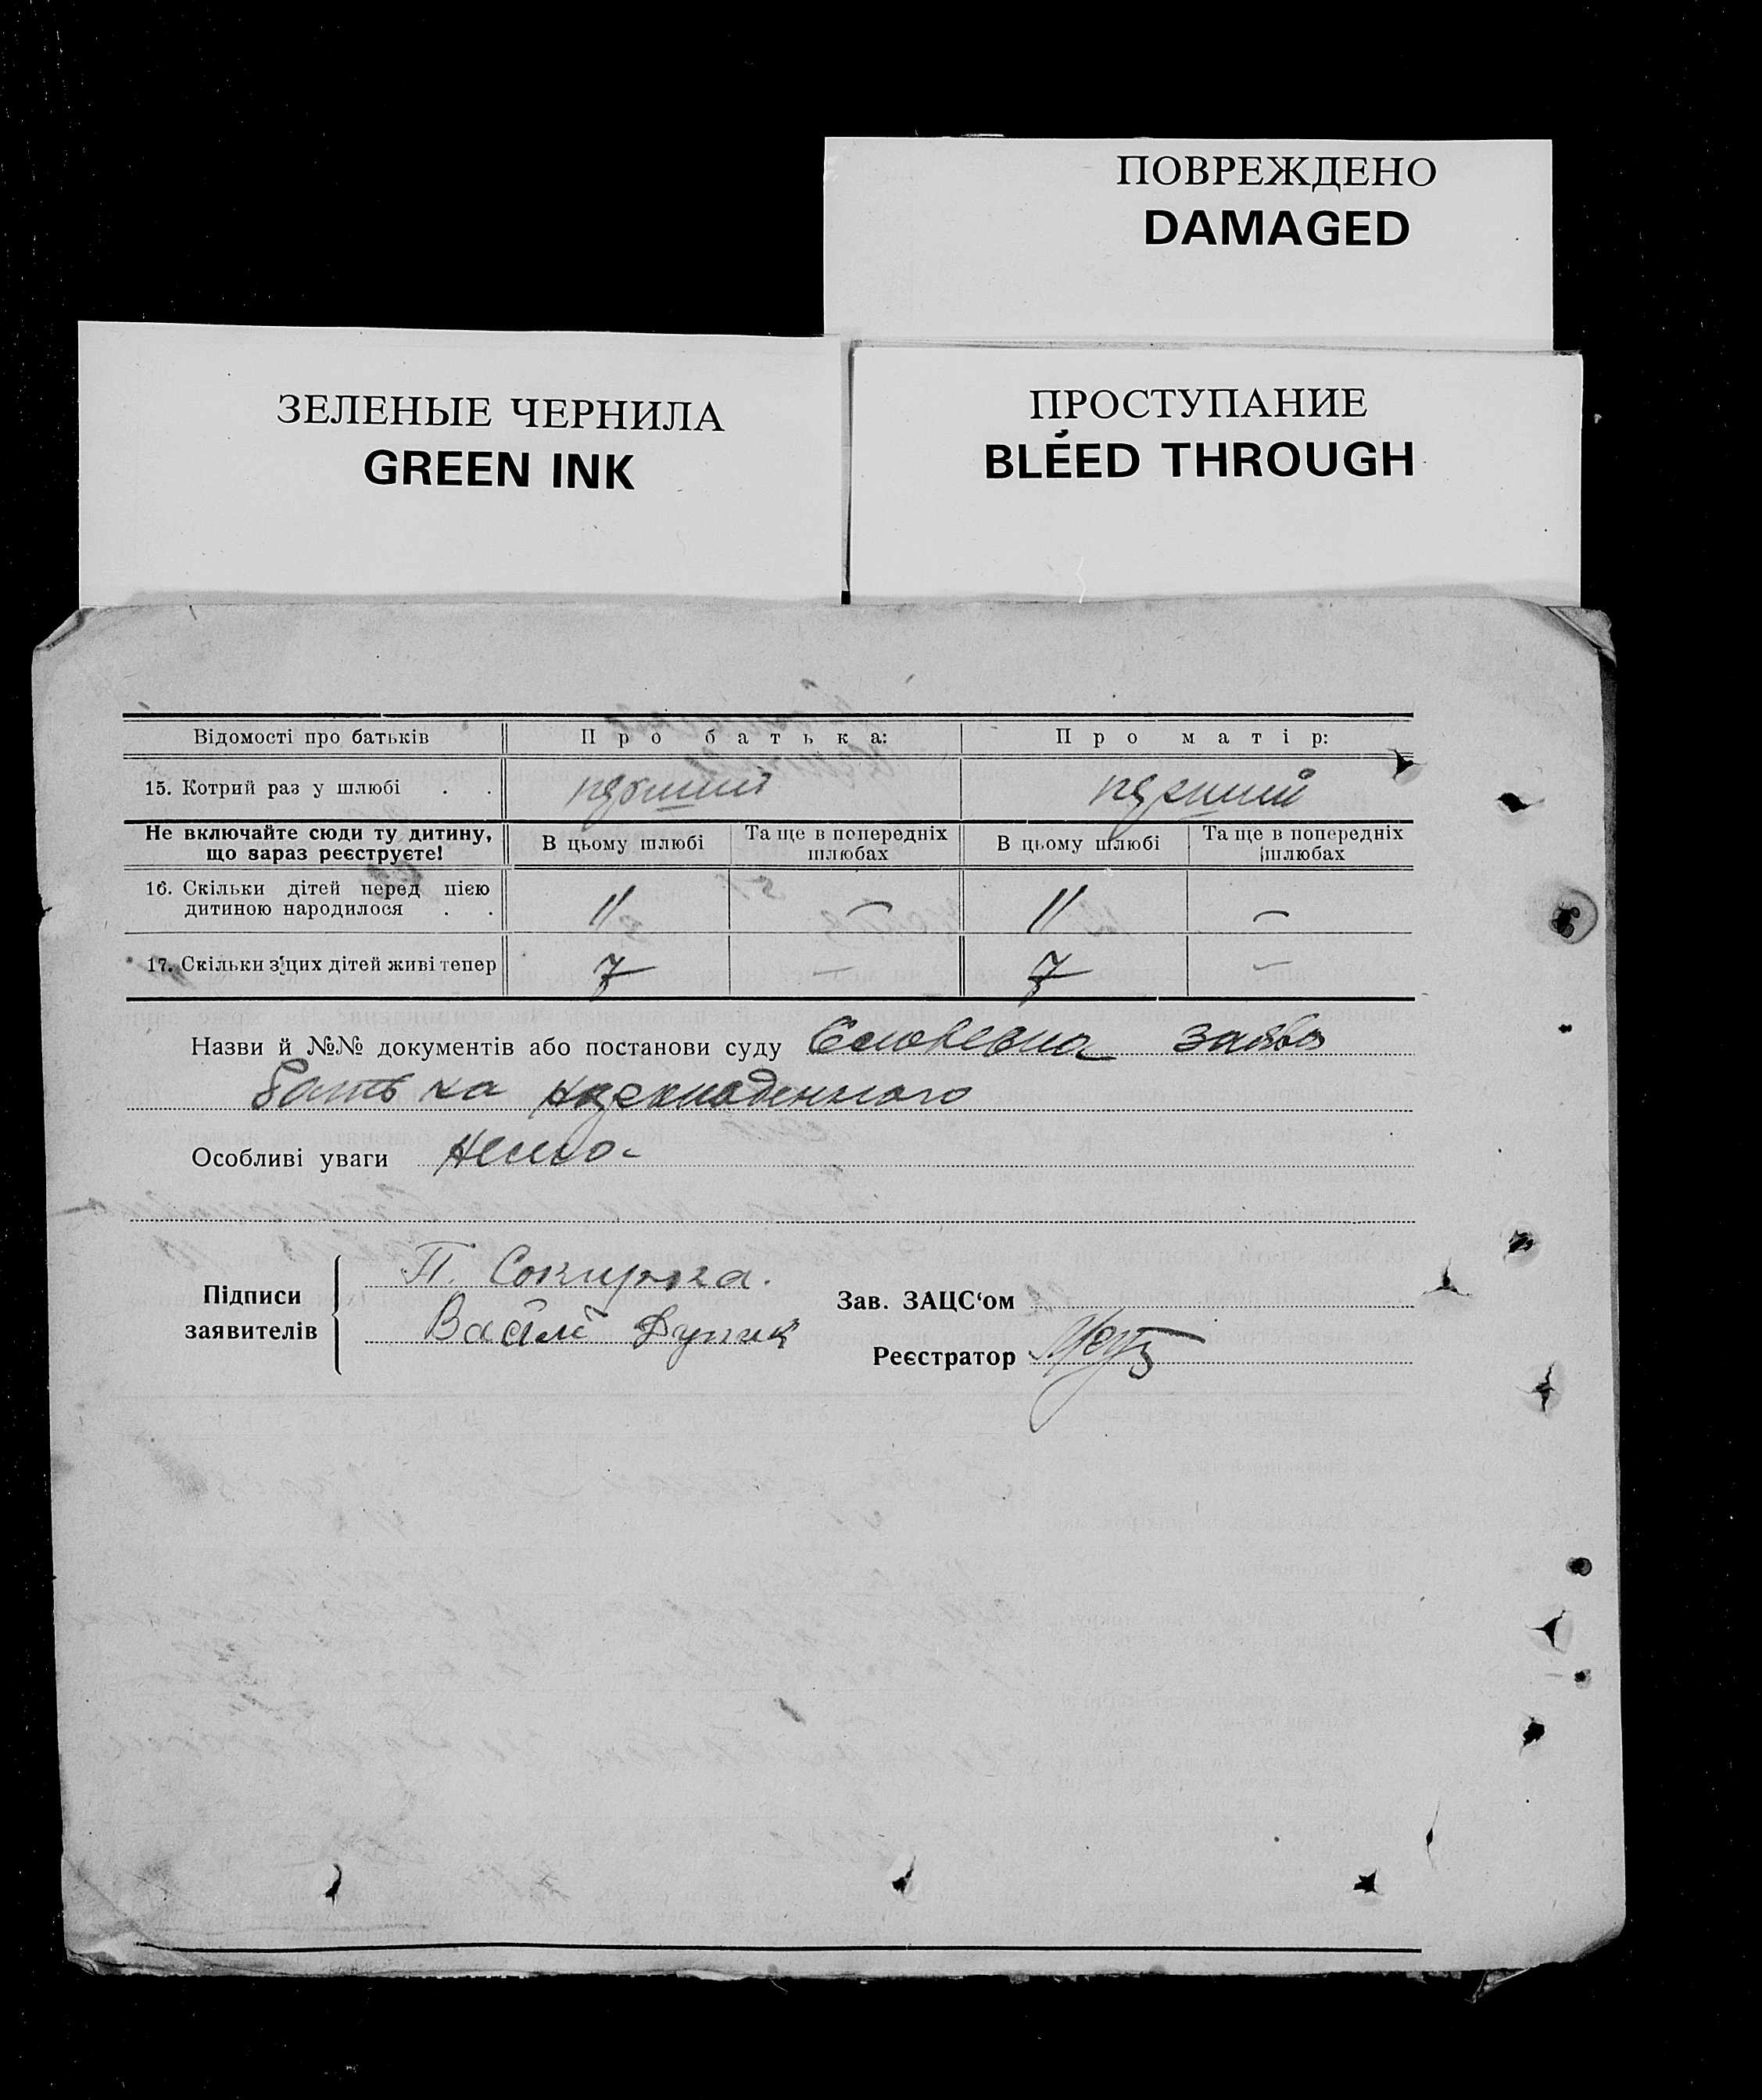 ПОВРЕЖДЕНО
DAMAGED
ЗЕЛЕНЫЕ ЧЕРНИЛА
GREEN INK
ПРОСТУПАНИЕ
BLEED THROUGH
Відомості про батьків Про батька: Про матір:
15. Котрий раз у шлюбі . . перший перший
Не включайте сюди ту дитину, що зараз реєструєте! В цьому шлюбі Та ще в попередніх шлюбах В цьому шлюбі Та ще в попередніх шлюбах
16. Скільки дітей перед цією
дитиною народилося . . 11 — 11 —
17. Скільки з цих дітей живі тепер 7 — 7 —
Назви й №№ документів або постанови суду Словесна заява
батька
Особливі уваги
П. Сокирка.
Підписи
заявителів
Зав. ЗАЦС‘ом
Реєстратор